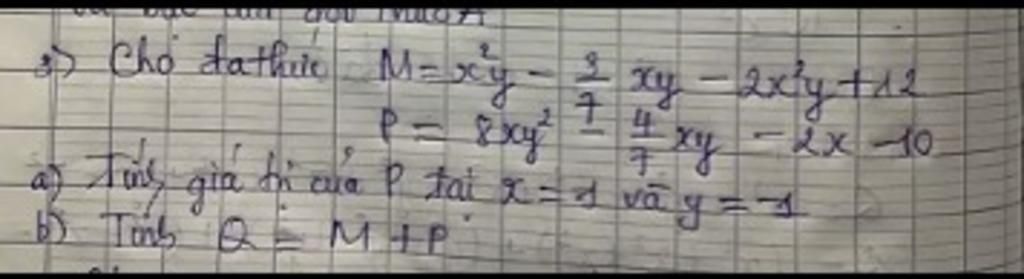 3) Cho đa thức M = x²y - 3/7 xy - 2x²y + 12
P = 8xy² - 4/7 xy - 2x - 10
a) Tính giá trị của P tại x = 1 và y = -1
b) Tính Q = M + P